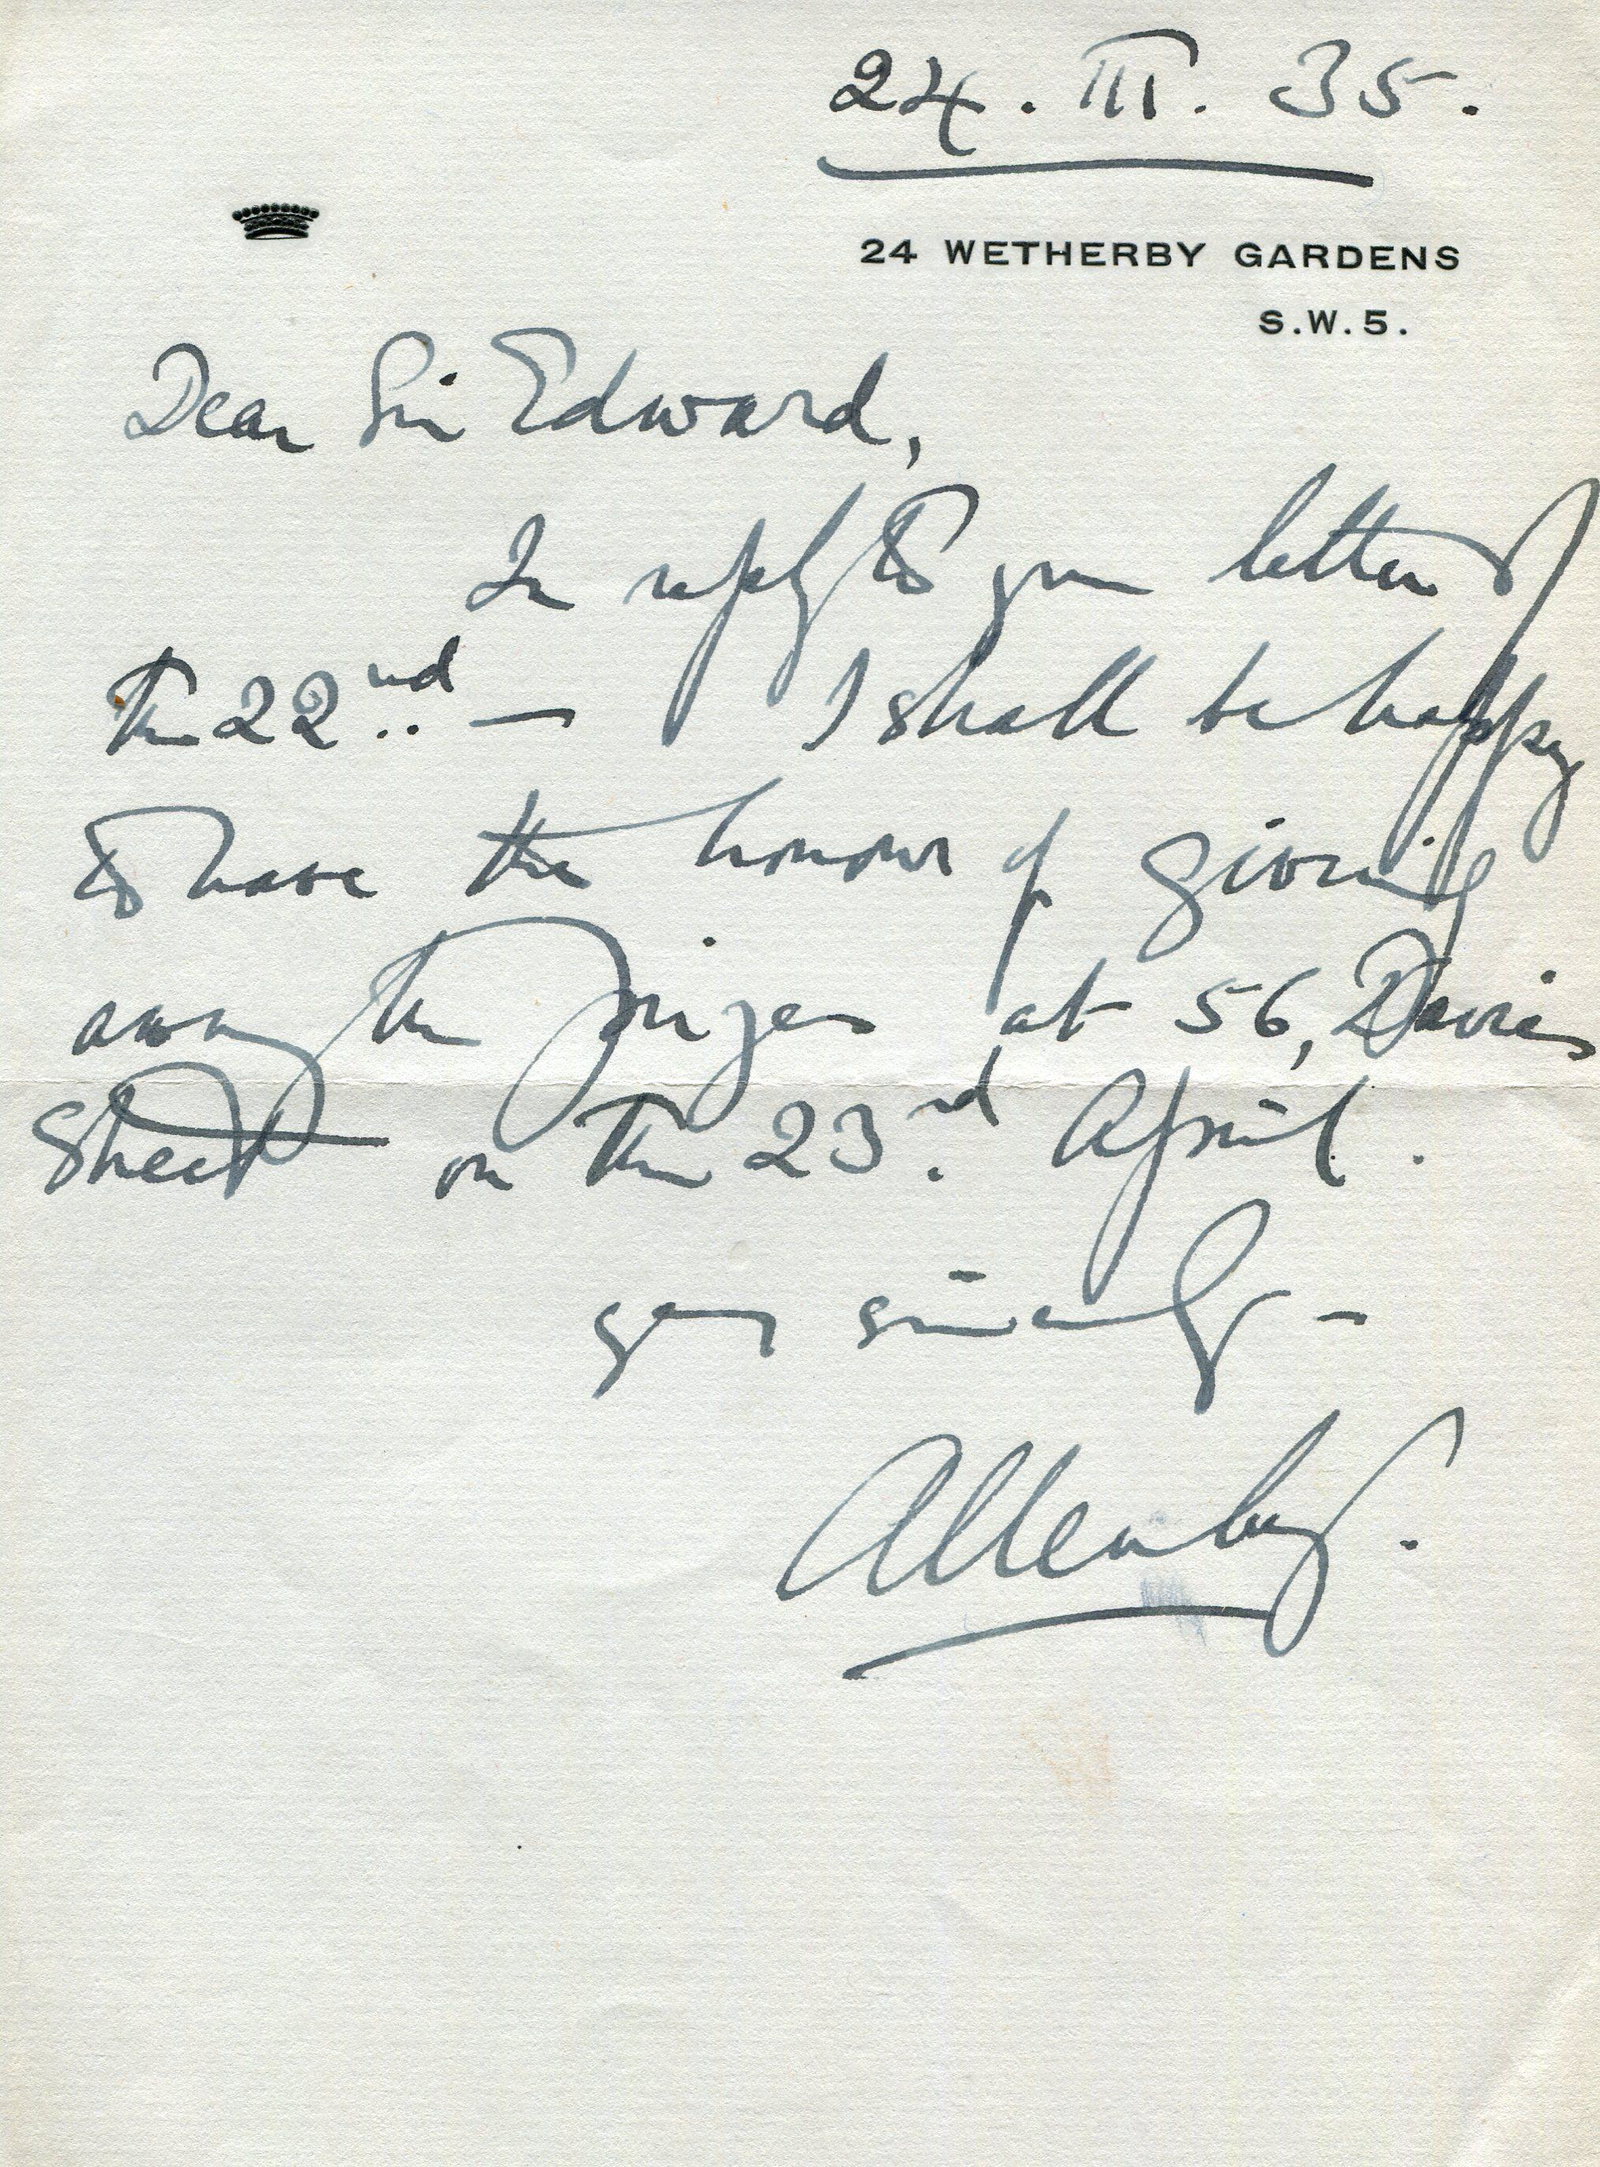 24. III. 35.
24 WETHERBY GARDENS
S.W.5.
Dear Sir Edward,
In reply to your letter of
the 22nd — I shall be happy
to have the honour of giving
away the prizes at 56, Davies
Street on the 23rd April.
Yours sincerely —
Allenby.